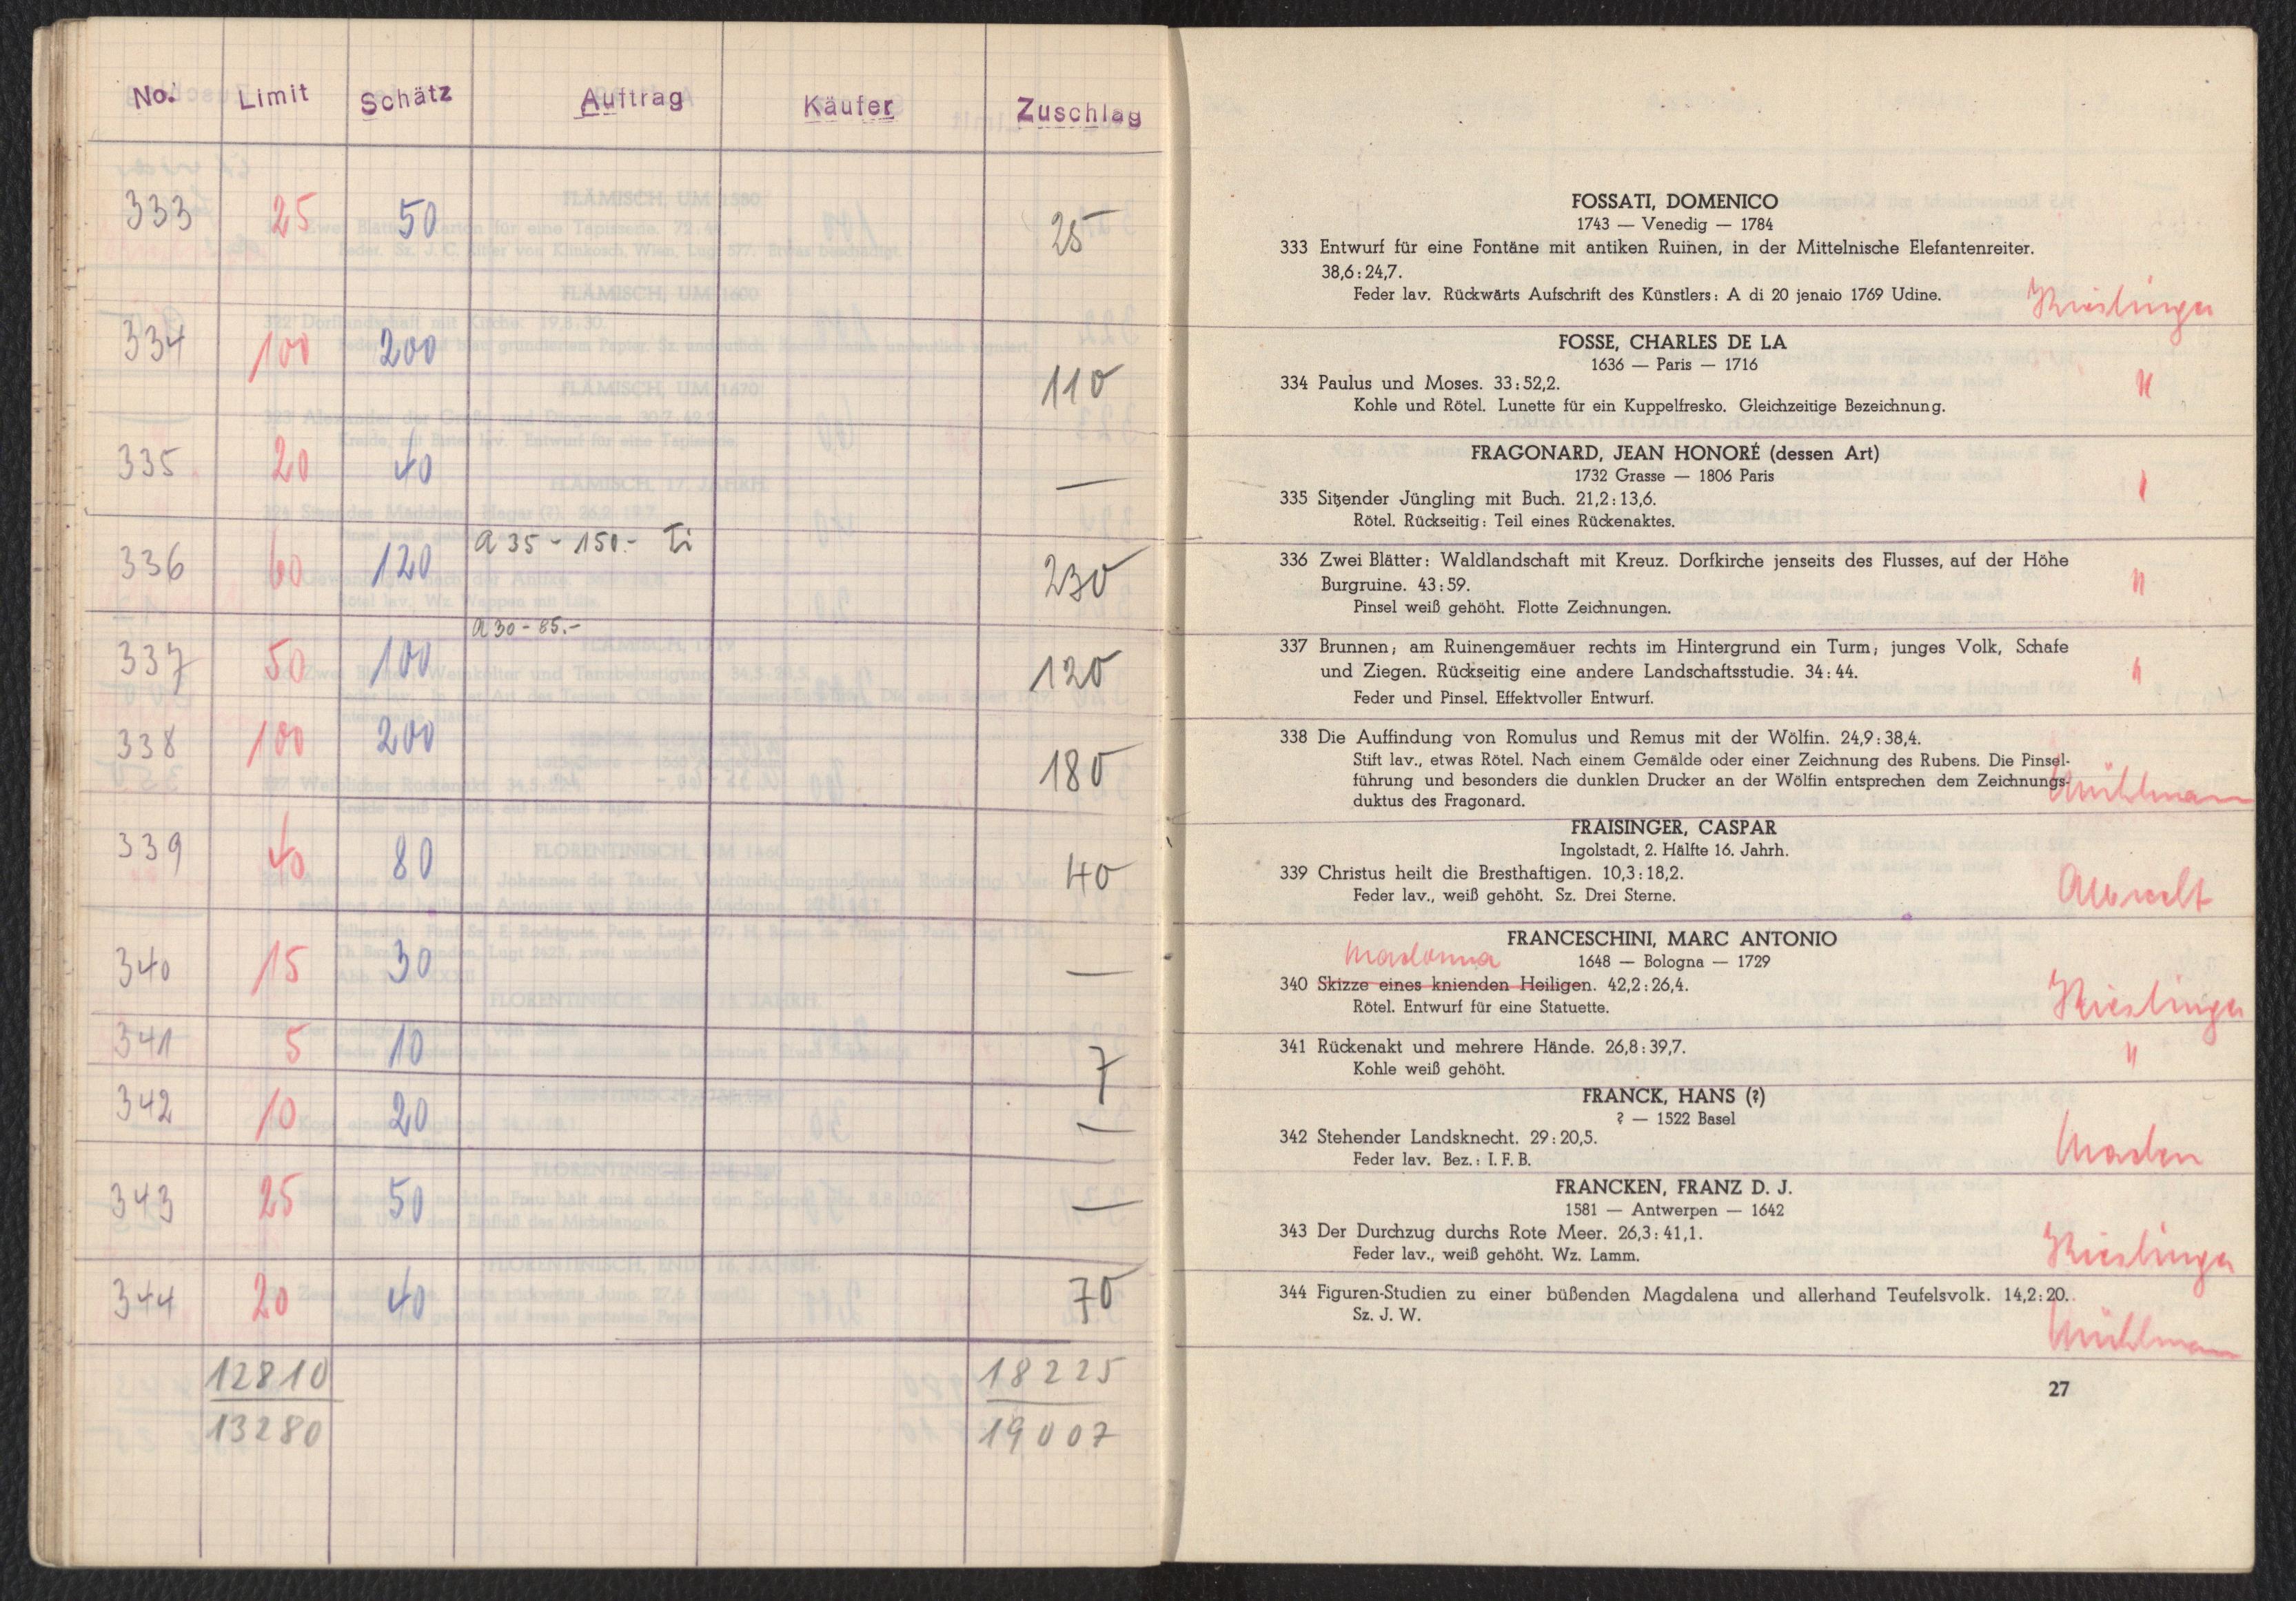 No. Limit Schätz Auftrag Käufer Zuschlag
333 25 50 25
334 100 200 110
335 20 40 —
336 60 120 a 35 - 150.- Ti 230
337 50 100 a 30 - 85.- 120
338 100 200 180
339 40 80 40
340 15 30 —
341 5 10 7
342 10 20 —
343 25 50 —
344 20 40 70
12810 18225
13280 19007
FOSSATI, DOMENICO
1743 — Venedig — 1784
333 Entwurf für eine Fontäne mit antiken Ruinen, in der Mittelnische Elefantenreiter.
38,6 : 24,7.
Feder lav. Rückwärts Aufschrift des Künstlers: A di 20 jenaio 1769 Udine.
Kieslinger
FOSSE, CHARLES DE LA
1636 — Paris — 1716
334 Paulus und Moses. 33 : 52,2. "
Kohle und Rötel. Lunette für ein Kuppelfresko. Gleichzeitige Bezeichnung.
FRAGONARD, JEAN HONORÉ (dessen Art)
1732 Grasse — 1806 Paris
335 Sitzender Jüngling mit Buch. 21,2 : 13,6. "
Rötel. Rückseitig: Teil eines Rückenaktes.
336 Zwei Blätter: Waldlandschaft mit Kreuz. Dorfkirche jenseits des Flusses, auf der Höhe
Burgruine. 43 : 59. "
Pinsel weiß gehöht. Flotte Zeichnungen.
337 Brunnen; am Ruinengemäuer rechts im Hintergrund ein Turm; junges Volk, Schafe
und Ziegen. Rückseitig eine andere Landschaftsstudie. 34 : 44. "
Feder und Pinsel. Effektvoller Entwurf.
338 Die Auffindung von Romulus und Remus mit der Wölfin. 24,9 : 38,4.
Stift lav., etwas Rötel. Nach einem Gemälde oder einer Zeichnung des Rubens. Die Pinsel-
führung und besonders die dunklen Drucker an der Wölfin entsprechen dem Zeichnungs-
duktus des Fragonard.
Mühlmann
FRAISINGER, CASPAR
Ingolstadt, 2. Hälfte 16. Jahrh.
339 Christus heilt die Bresthaftigen. 10,3 : 18,2.
Feder lav., weiß gehöht. Sz. Drei Sterne.
FRANCESCHINI, MARC ANTONIO
Madonna
1648 — Bologna — 1729
340 Skizze eines knienden Heiligen. 42,2 : 26,4.
Rötel. Entwurf für eine Statuette.
Kieslinger
341 Rückenakt und mehrere Hände. 26,8 : 39,7. "
Kohle weiß gehöht.
FRANCK, HANS (?)
? — 1522 Basel
342 Stehender Landsknecht. 29 : 20,5.
Feder lav. Bez.: I. F. B.
FRANCKEN, FRANZ D. J.
1581 — Antwerpen — 1642
343 Der Durchzug durchs Rote Meer. 26,3 : 41,1.
Feder lav., weiß gehöht. Wz. Lamm.
Kieslinger
344 Figuren-Studien zu einer büßenden Magdalena und allerhand Teufelsvolk. 14,2 : 20.
Sz. J. W.
Mühlmann
27